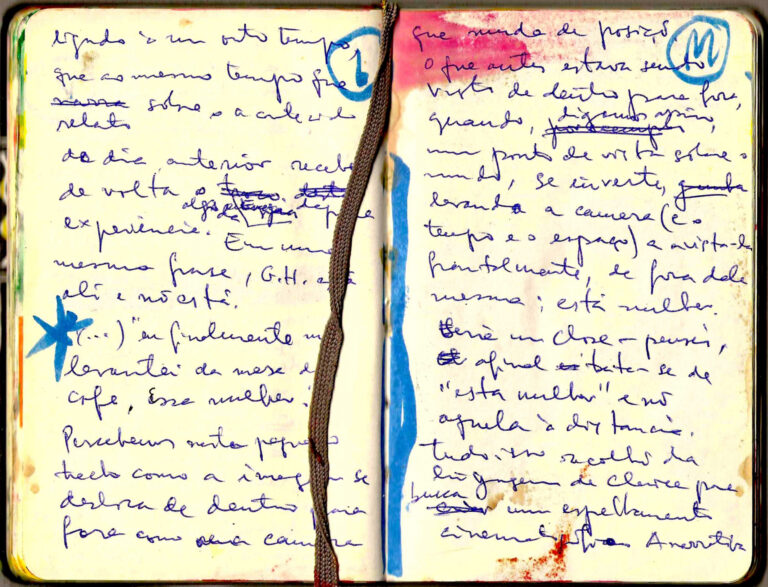 ligado a um outro tempo
6
que ao mesmo tempo que
narra sobre o a
relato
do dia anterior recebe
de volta o
algo da
experiência. Em uma
mesma frase, G.H. está
ali e não está.
(...) "eu finalmente me
levantei da mesa do
café, essa mulher."
Percebemos neste pequeno
trecho como a imagem se
desloca de dentro para
fora como uma camera
que muda de posição
M
O que antes estava sendo
visto de dentro para fora,
quando, digamos assim,
por exemplo
um ponto de vista sobre o
mundo, se inverte, ganha
levando a camera (e o
tempo e o espaço) a avista-la
frontalmente, de fora dela
mesma: esta mulher.
Seria um close – pensei,
afinal trata-se de
"esta mulher" e não
aquela à distancia.
Tudo isso recolhi da
linguagem de Clarice para
busca
criar um espelhamento
cinematográfico. A narrativa